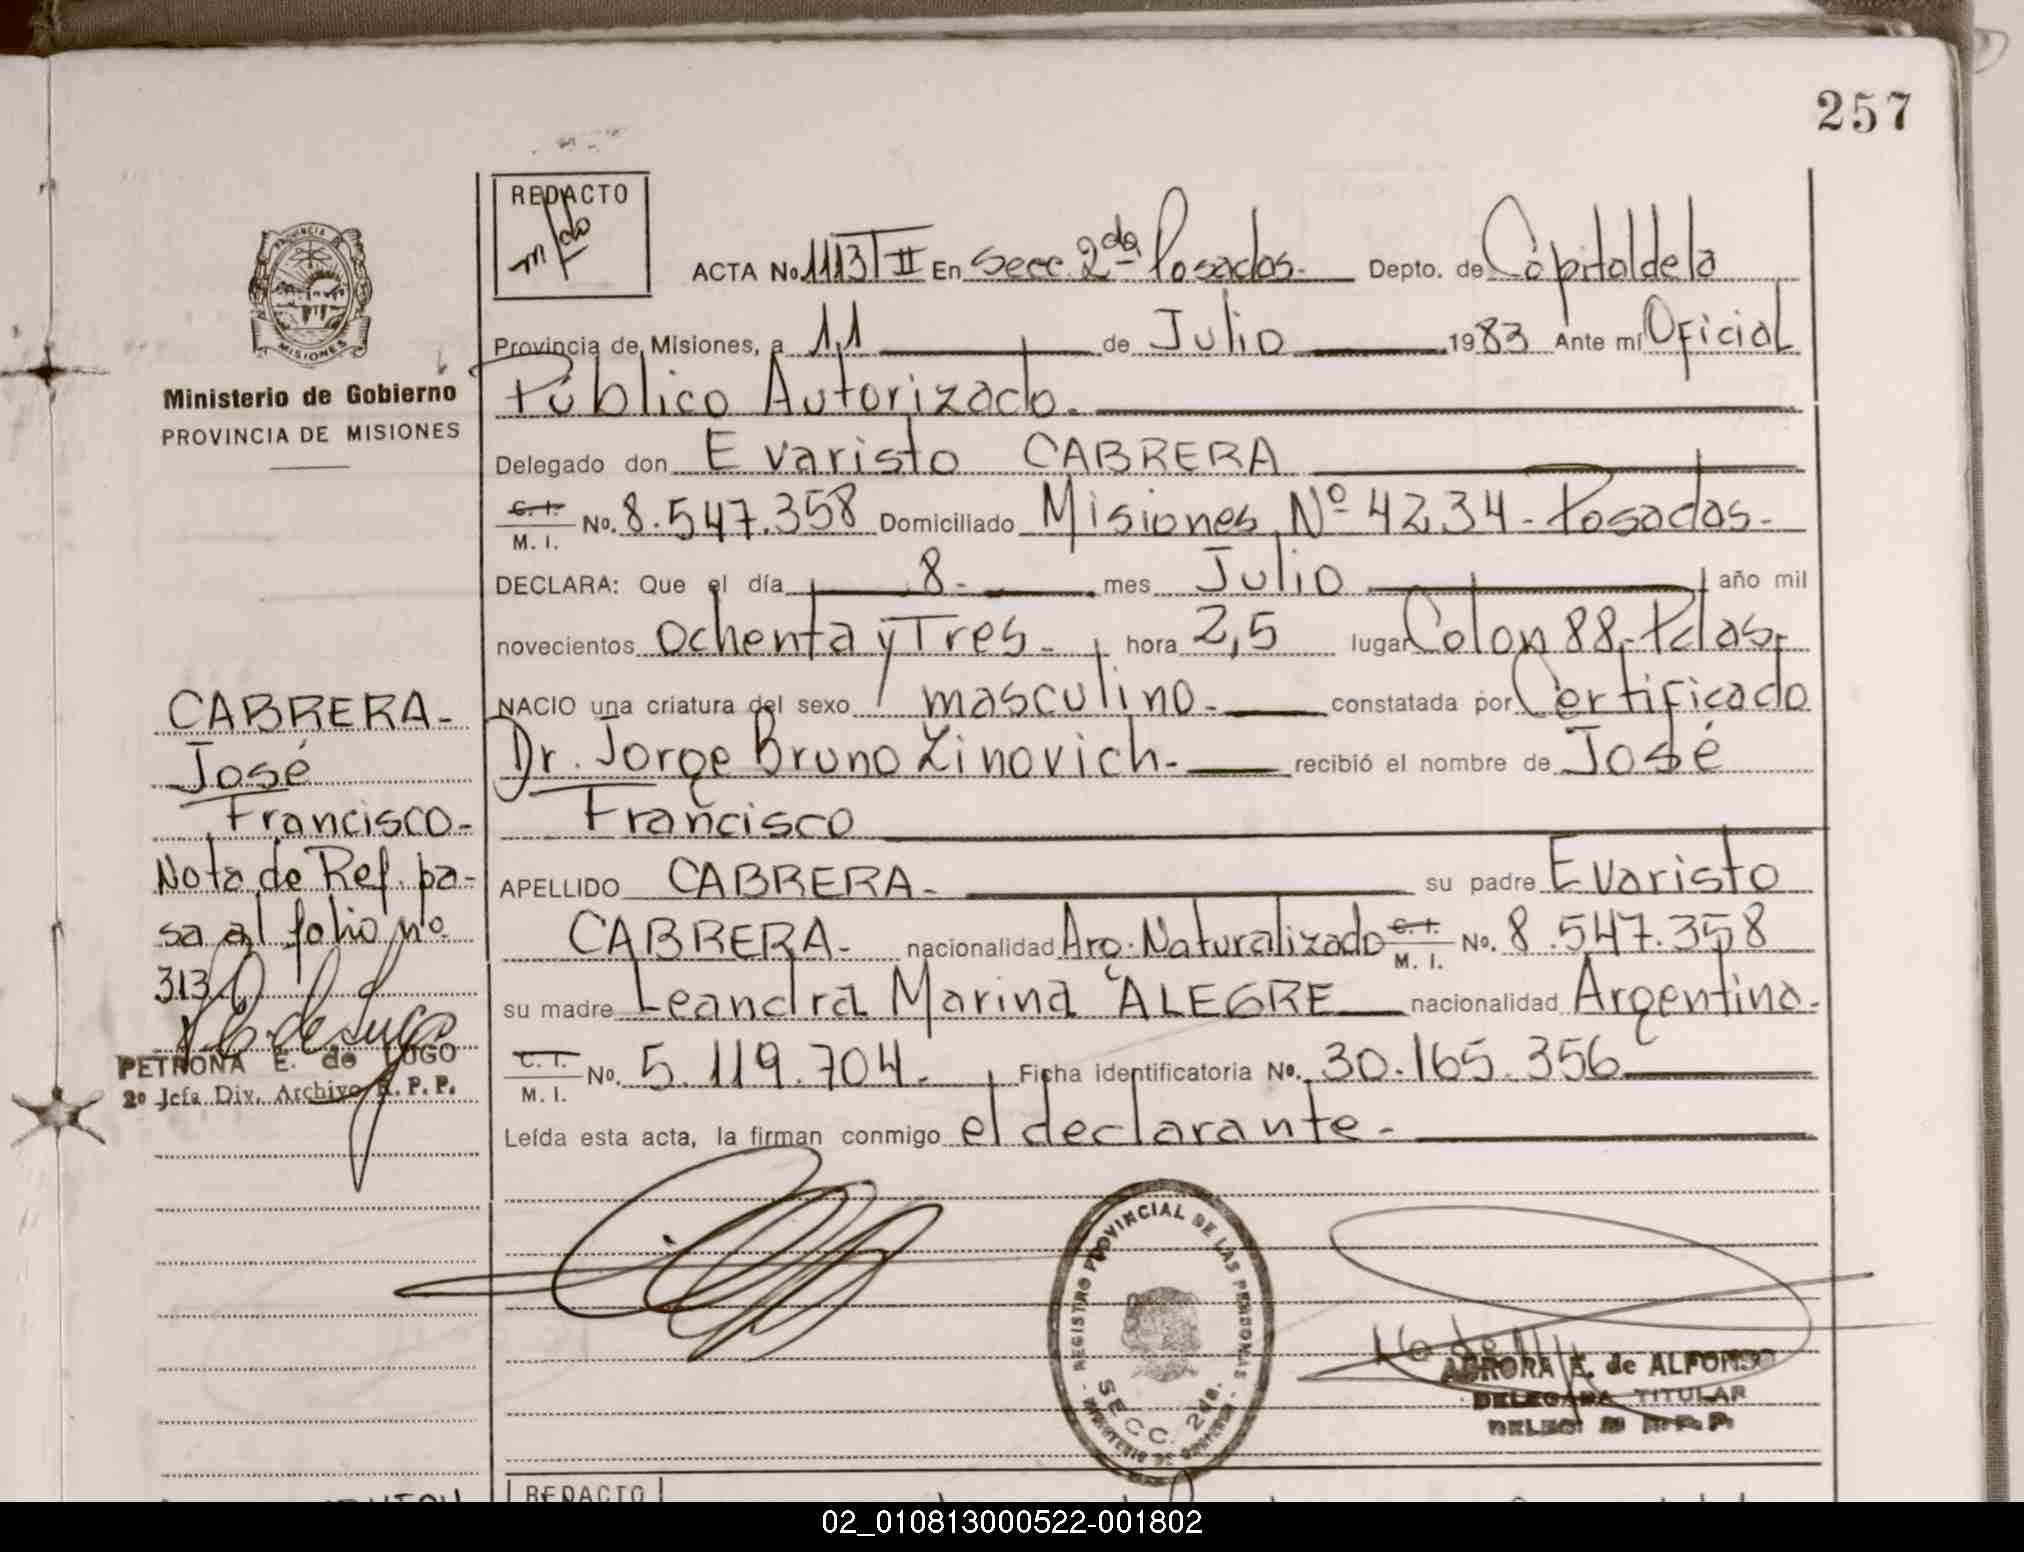 257
REDACTO
ACTA No. 1113 T II En Secc. 2da Posadas. Depto. de Capital de la
PROVINCIA DE
MISIONES
Provincia de Misiones, a 11 de Julio 1983 Ante mí Oficial
Ministerio de Gobierno
PROVINCIA DE MISIONES
Público Autorizado.
Delegado don Evaristo CABRERA
C. I.
M. I. No. 8.547.358 Domiciliado Misiones Nº 4234 - Posadas -
DECLARA: Que el día 8 - mes Julio año mil
novecientos ochenta y Tres - hora 2,5 lugar Colon 88 - Pdas -
NACIO una criatura del sexo masculino - constatada por Certificado
Dr. Jorge Bruno Zinovich - recibió el nombre de José
Francisco
APELLIDO CABRERA - su padre Evaristo
CABRERA - nacionalidad Arg. Naturalizado C. I. M. I. No. 8.547.358
su madre Leandra Marina ALEGRE nacionalidad Argentina -
C. I.
M. I. No. 5.119.704 - Ficha identificatoria No. 30.165.356
Leída esta acta, la firman conmigo el declarante -
CABRERA -
José
Francisco -
Nota de Ref. pa-
sa al folio nº
313
PETRONA E. de LUGO
2º Jefa Div. Archivo R. P. P.
REGISTRO PROVINCIAL DE LAS PERSONAS
SECC. 2da.
MINISTERIO DE GOBIERNO
AURORA E. de ALFONSO
DELEGADA TITULAR
R. P. P.
REDACTO
02_010813000522-001802